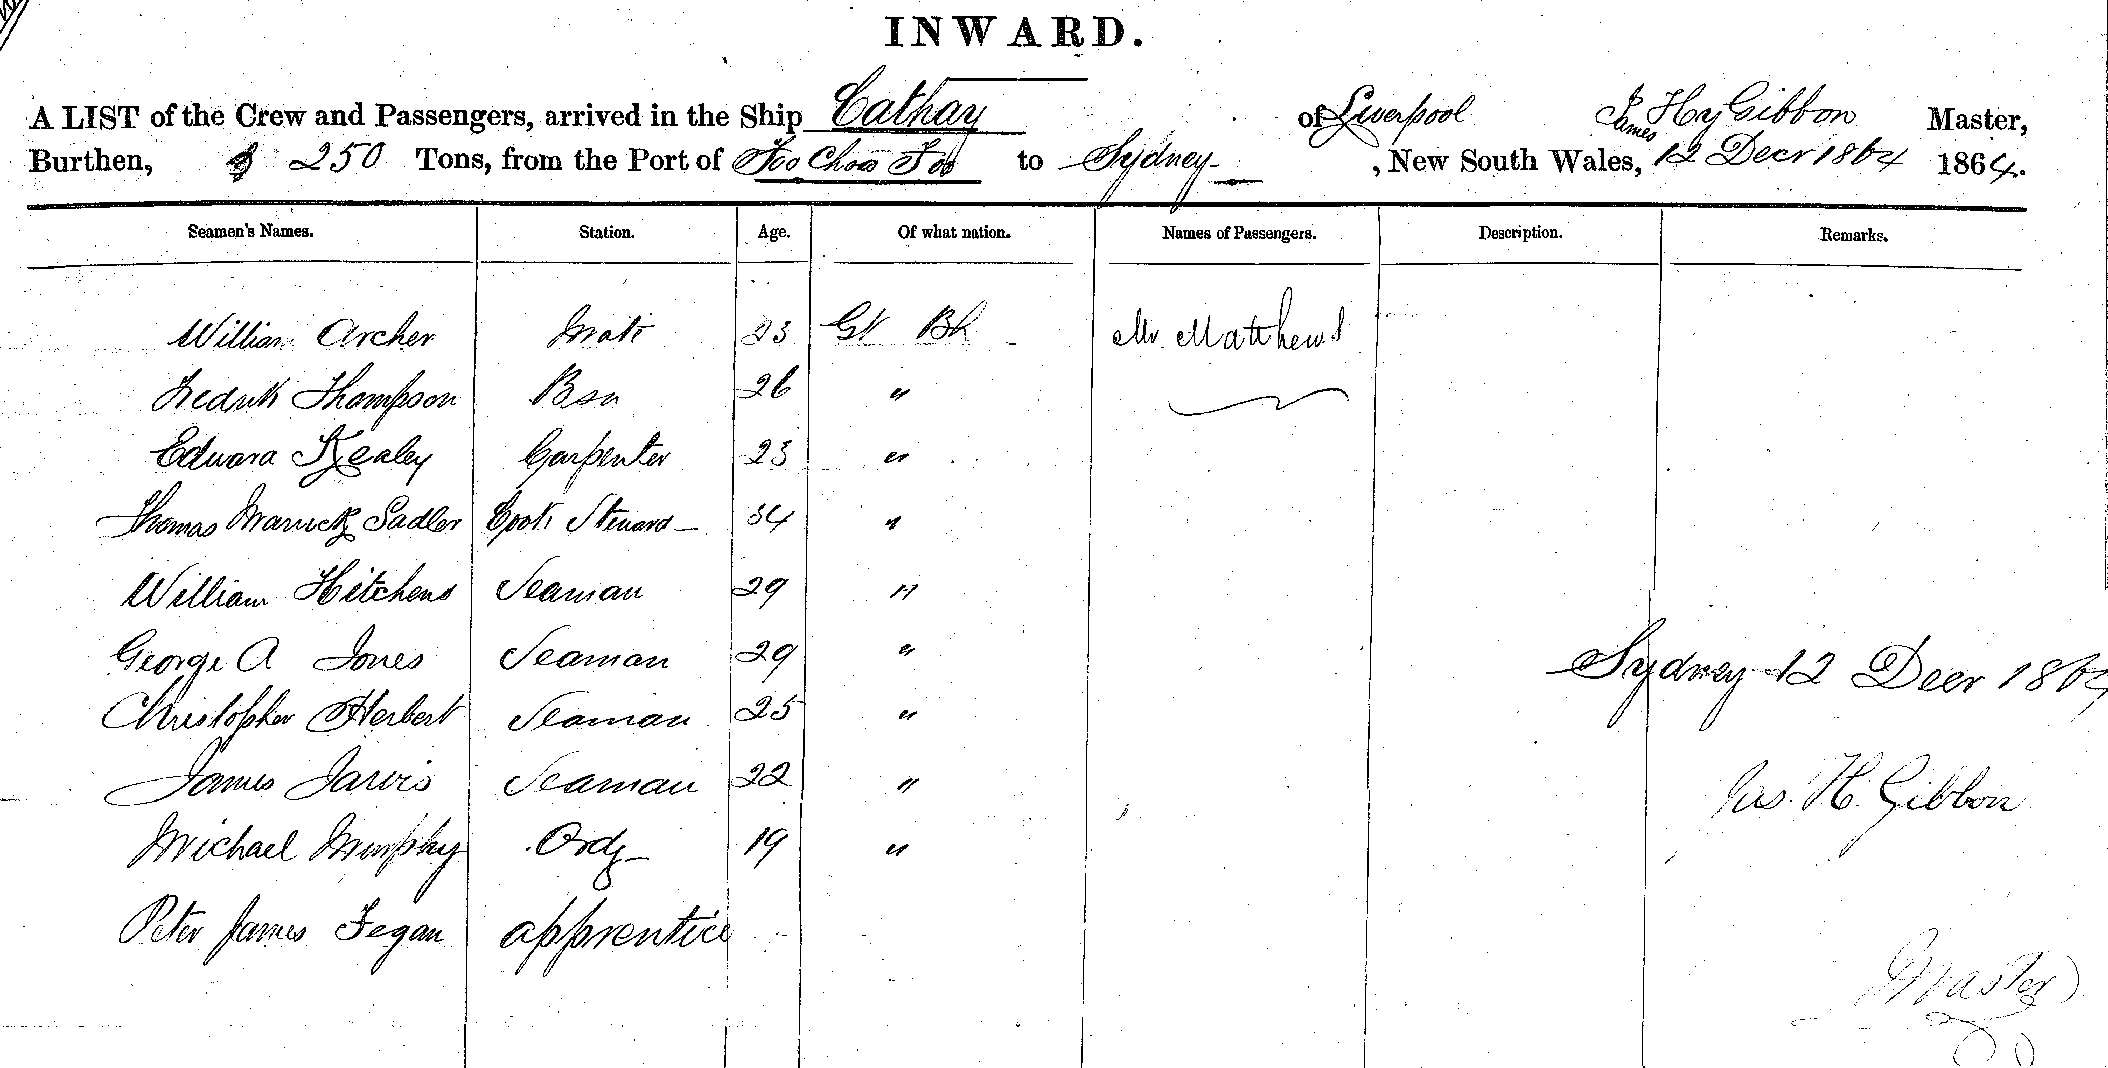 INWARD.
A LIST of the Crew and Passengers, arrived in the Ship Cathay of Liverpool James Hy Gibbon Master,
Burthen, 250 Tons, from the Port of Foo Choo Foo to Sydney, New South Wales, 12 Decr 1864 1864.
Seamen's Names. Station. Age. Of what nation. Names of Passengers. Description. Remarks.
William Archer Mate 23 Gt Bt Mr Matthews
Fredrik Thompson Bsn 26 "
Edward Kealey Carpenter 23 "
Thomas Warrick Sadler Cook Steward 34 "
William Hitchens Seaman 29 "
George A Jones Seaman 29 "
Sydney 12 Decr 1864
Christopher Herbert Seaman 25 "
James Jarvis Seaman 22 "
Jas. H. Gibbon
Michael Murphy Ordy 19 "
Peter James Fegan apprentice
Master